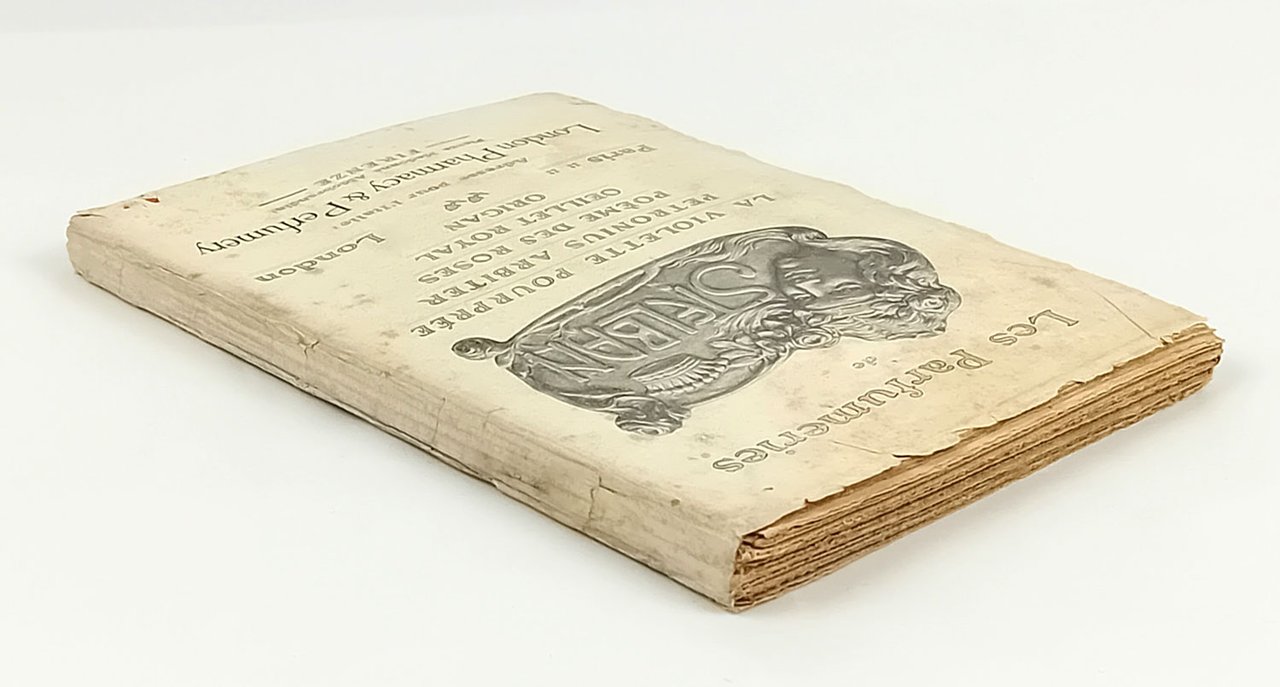 Les Parfumeries
de
LA VIOLETTE POURPRÉE
PETRONIUS ARBITER
POÈME DES ROSES
ŒILLET ROYAL
ORIGAN
Paris :: :: London
Adresse pour l'Italie
London Pharmacy & Perfumery
FIRENZE